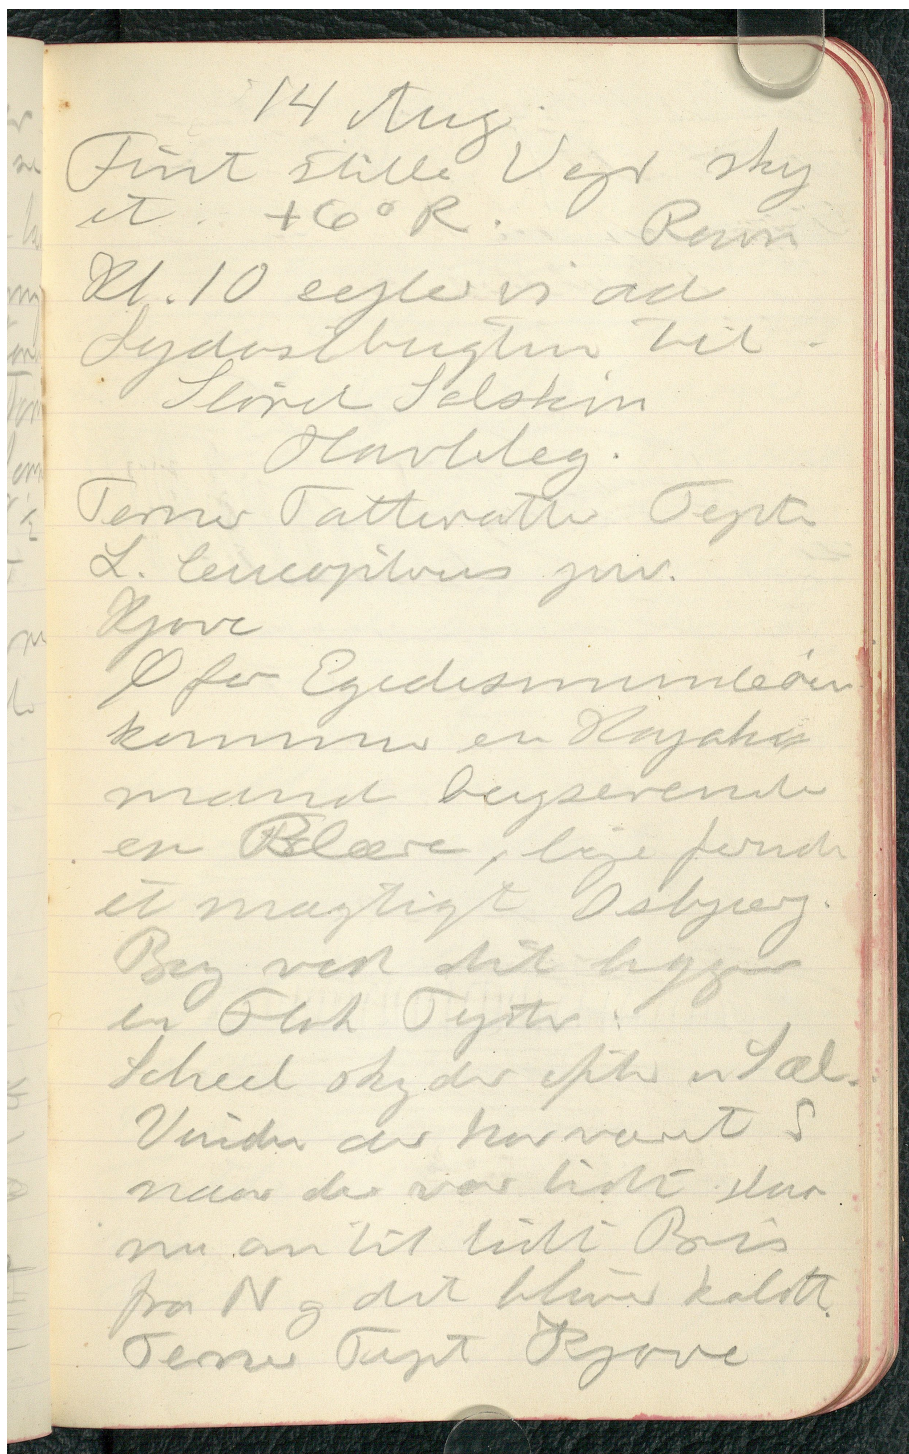 14 Aug.
Fint stille Vejr sky
et. +6° R. Ravn
Kl. 10 sejler vi ad
Sydostbugten til.
Sløret Solskin
Havbleg.
Terner Tatteratter Tejste
L. leucopterus juv.
Kjove
Ø for Egedesmindeøen
kommer en Kajak
mand bugserende
en Blære, lige forude
et mægtigt Isbjerg.
Bag ved det ligger
en Flok Tejster.
Scheel skyder efter en Sæl.
Vinden der har været S
naar der var lidt slaar
nu om til lidt Bris
fra N og det bliver koldt.
Terner Tejst Kjove